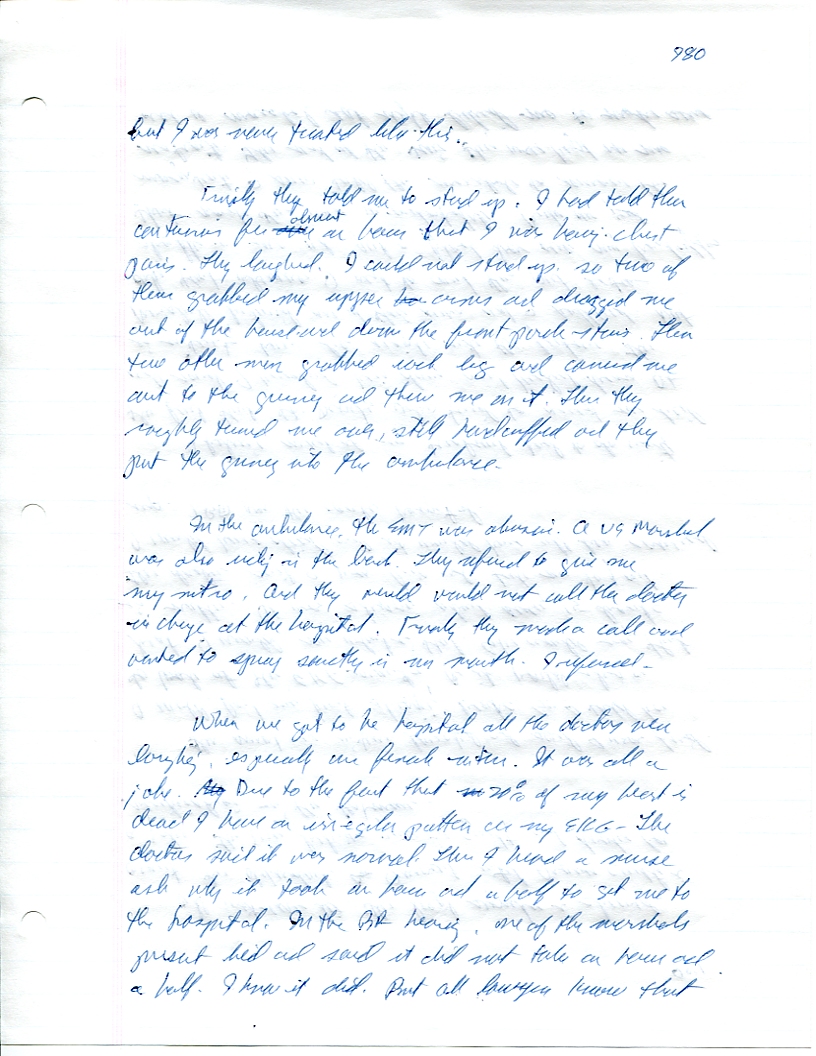 980
but I was never treated like this..
Finally they told me to stand up. I had told them
continuous for almost an hour that I was having chest
pains. They laughed. I could not stand up so two of
them grabbed my upper arms and dragged me
out of the house and down the front porch stairs. Then
two other men grabbed each leg and carried me
out to the gurney and threw me on it. Then they
roughly turned me over, still handcuffed and they
put the gurney into the ambulance.
In the ambulance, the EMT was abusive. A US Marshal
was also riding in the back. They refused to give me
my nitro. And they would not call the doctor
in charge at the hospital. Finally they made a call and
wanted to spray something in my mouth. I refused -
When we got to he hospital all the doctors were
laughing, especially one female intern. It was all a
joke. Due to the fact that 20% of my heart is
dead I have an irregular pattern on my EKG - The
doctors said it was normal. Then I heard a nurse
ask why it took an hour and a half to get me to
the hospital. In the hearing, one of the marshals
present lied and said it did not take an hour and
a half. I know it did. But all lawyers know that